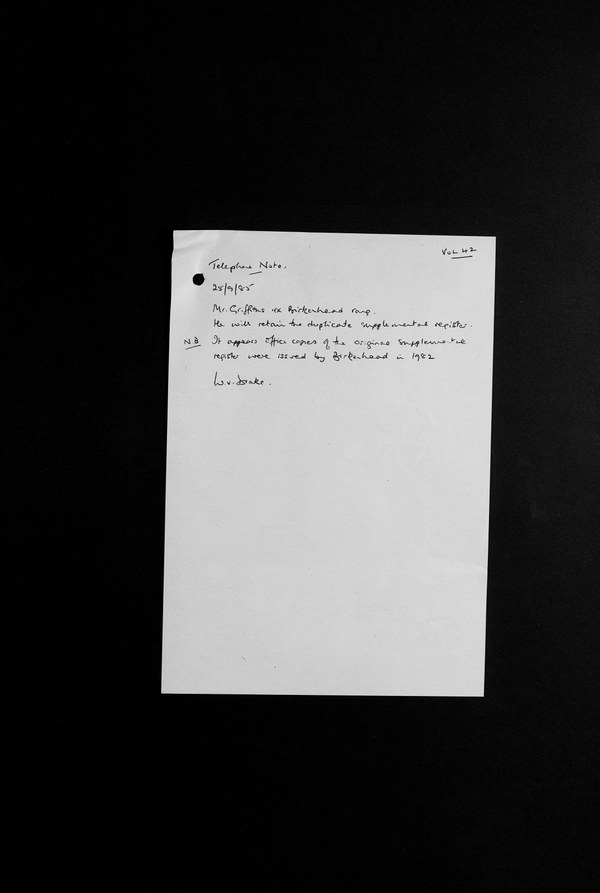 VOL 42
Telephone Note.
25/9/85
Mr. Griffiths ex Birkenhead rang.
He will retain the duplicate supplemental register.
N.B. It appears office copies of the original supplemental
register were issued by Birkenhead in 1982
W.V. Drake.